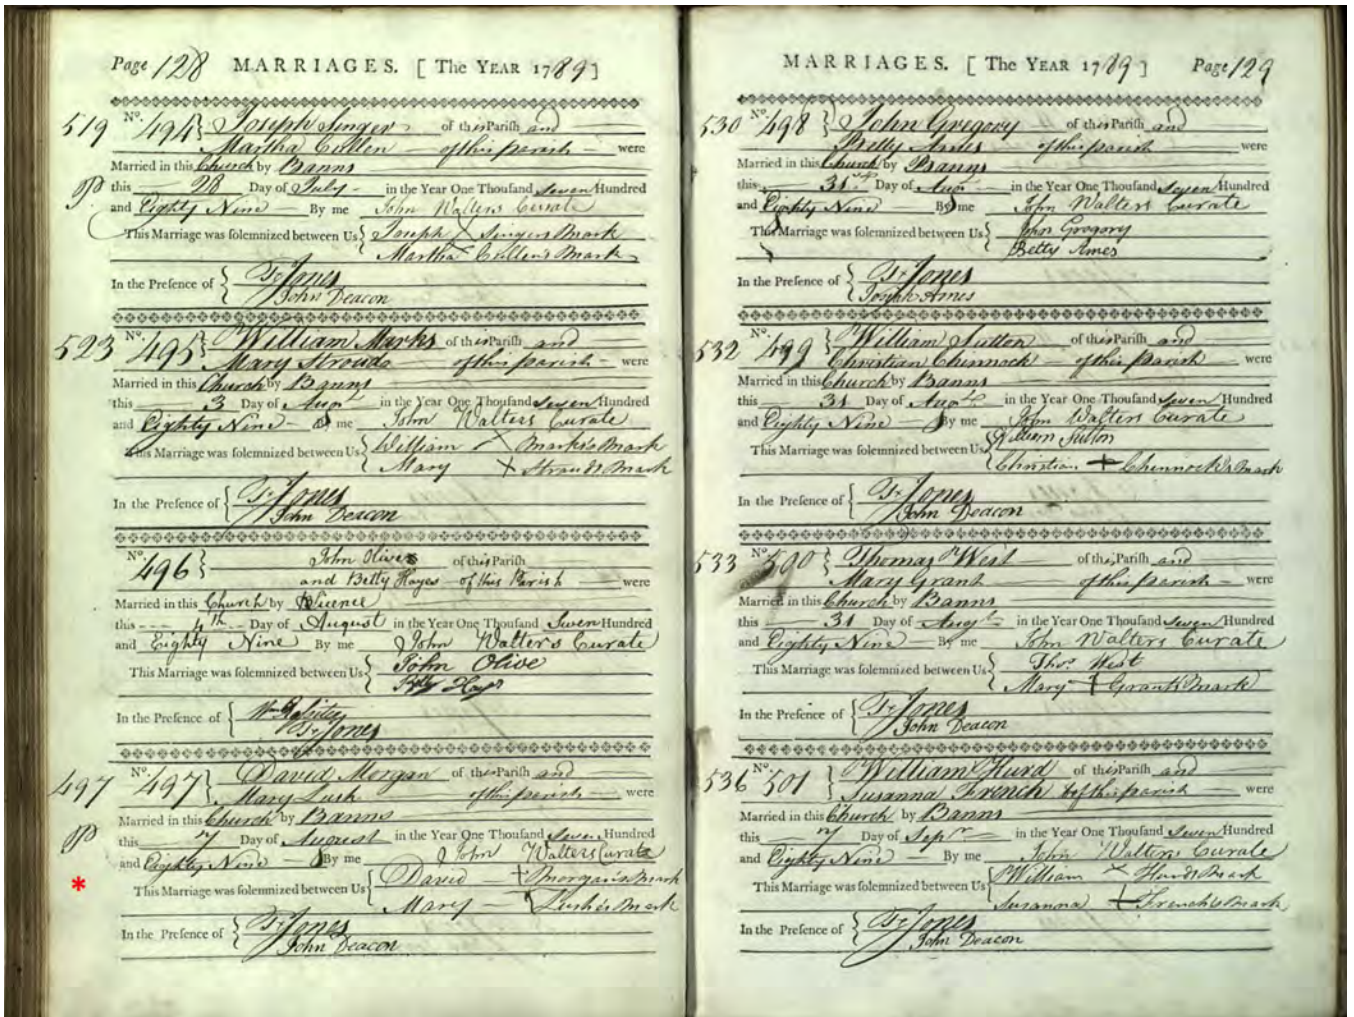 Page 128 MARRIAGES. [ The YEAR 1789 ]
519 No. 494 } Joseph Singer of this Parish and
Martha Cullen of this parish were
Married in this Church by Banns
this 28 Day of July in the Year One Thousand Seven Hundred
and Eighty Nine By me John Walters Curate
This Marriage was solemnized between Us { Joseph X Singers Mark
Martha Cullen's Mark
In the Presence of { Jones
John Deacon
523 No. 495 } William Marks of this Parish and
Mary Stroud of this parish were
Married in this Church by Banns
this 3 Day of Augt in the Year One Thousand Seven Hundred
and Eighty Nine By me John Walters Curate
This Marriage was solemnized between Us { William X Marks's Mark
Mary X Stroud's Mark
In the Presence of { Jones
John Deacon
No. 496 } John Olive of this Parish
and Betty Hayes of this Parish were
Married in this Church by Licence
this 4th Day of August in the Year One Thousand Seven Hundred
and Eighty Nine By me John Walters Curate
This Marriage was solemnized between Us { John Olive
Betty Hayes
In the Presence of { Wm
Jones
497 No. 497 } David Morgan of this Parish and
Mary Lush of this parish were
Married in this Church by Banns
this 7 Day of August in the Year One Thousand Seven Hundred
and Eighty Nine By me John Walters Curate
* This Marriage was solemnized between Us { David + Morgan's Mark
Mary Lush's Mark
In the Presence of { Jones
John Deacon
MARRIAGES. [ The YEAR 1789 ] Page 129
530 498 } John Gregory of this Parish and
Betty Ames of this parish were
Married in this Church by Banns
this 31st Day of Augt in the Year One Thousand Seven Hundred
and Eighty Nine By me John Walters Curate
This Marriage was solemnized between Us { John Gregory
Betty Ames
In the Presence of { Jones
Joseph Ames
532 No. 499 } William Sutton of this Parish and
Christian Chinnock of this Parish were
Married in this Church by Banns
this 31 Day of Augt in the Year One Thousand Seven Hundred
and Eighty Nine By me John Walters Curate
This Marriage was solemnized between Us { William Sutton
Christian + Chennock's Mark
In the Presence of { Jones
John Deacon
533 No. 500 } Thomas West of this Parish and
Mary Grant of this parish were
Married in this Church by Banns
this 31 Day of Augt in the Year One Thousand Seven Hundred
and Eighty Nine By me John Walters Curate
This Marriage was solemnized between Us { Thos. West
Mary + Grant's Mark
In the Presence of { Jones
John Deacon
536 No. 501 } William Hurd of this Parish and
Susanna French of this parish were
Married in this Church by Banns
this 7 Day of Sepr in the Year One Thousand Seven Hundred
and Eighty Nine By me John Walters Curate
This Marriage was solemnized between Us { William X Hurds Mark
Susanna + French's Mark
In the Presence of { Jones
John Deacon